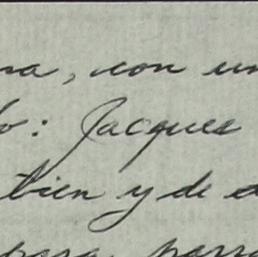 na, con un
o: Jacques
bien y de
para, para